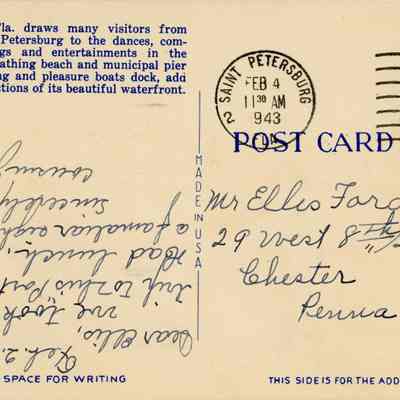 Fla. draws many visitors from
Petersburg to the dances, com-
gs and entertainments in the
athing beach and municipal pier
ng and pleasure boats dock, add
ctions of its beautiful waterfront.
SAINT PETERSBURG
2
FEB 4
11 30 AM
943
FLA.
POST CARD
MADE IN USA
Mr Ellis
29 West 8th
Chester
Penna
Feb. 2.
Dear Ellis,
We took
trip to this
had lunch.
a familiar
Sincerely
SPACE FOR WRITING
THIS SIDE IS FOR THE ADD